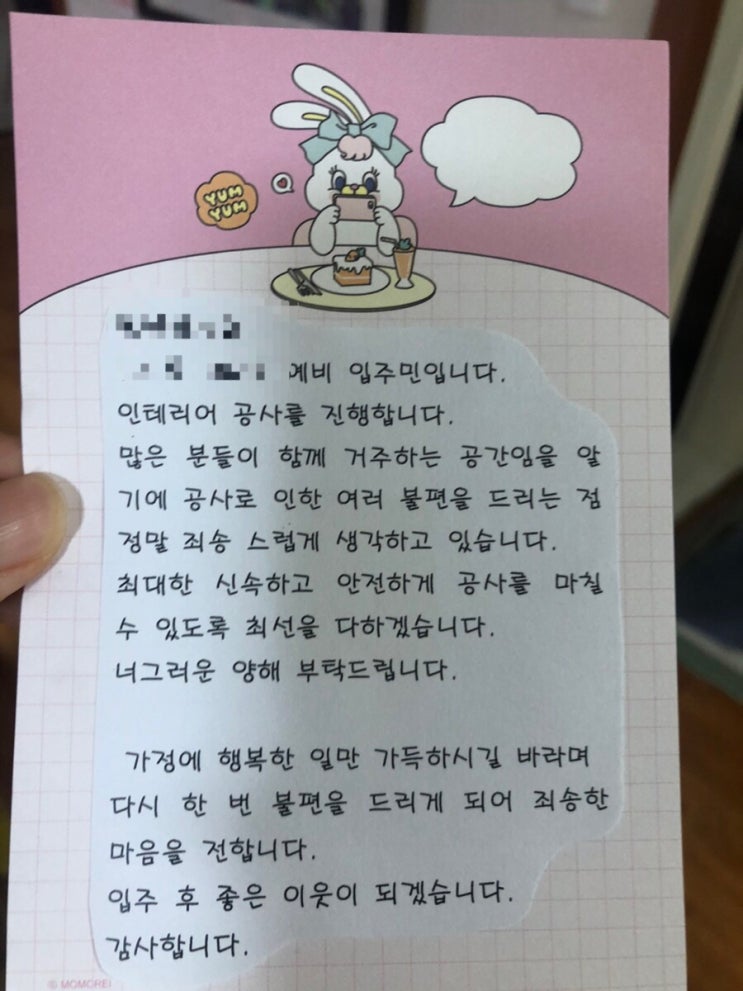 YUM
YUM
예비 입주민입니다.
인테리어 공사를 진행합니다.
많은 분들이 함께 거주하는 공간임을 알
기에 공사로 인한 여러 불편을 드리는 점
정말 죄송 스럽게 생각하고 있습니다.
최대한 신속하고 안전하게 공사를 마칠
수 있도록 최선을 다하겠습니다.
너그러운 양해 부탁드립니다.
가정에 행복한 일만 가득하시길 바라며
다시 한 번 불편을 드리게 되어 죄송한
마음을 전합니다.
입주 후 좋은 이웃이 되겠습니다.
감사합니다.